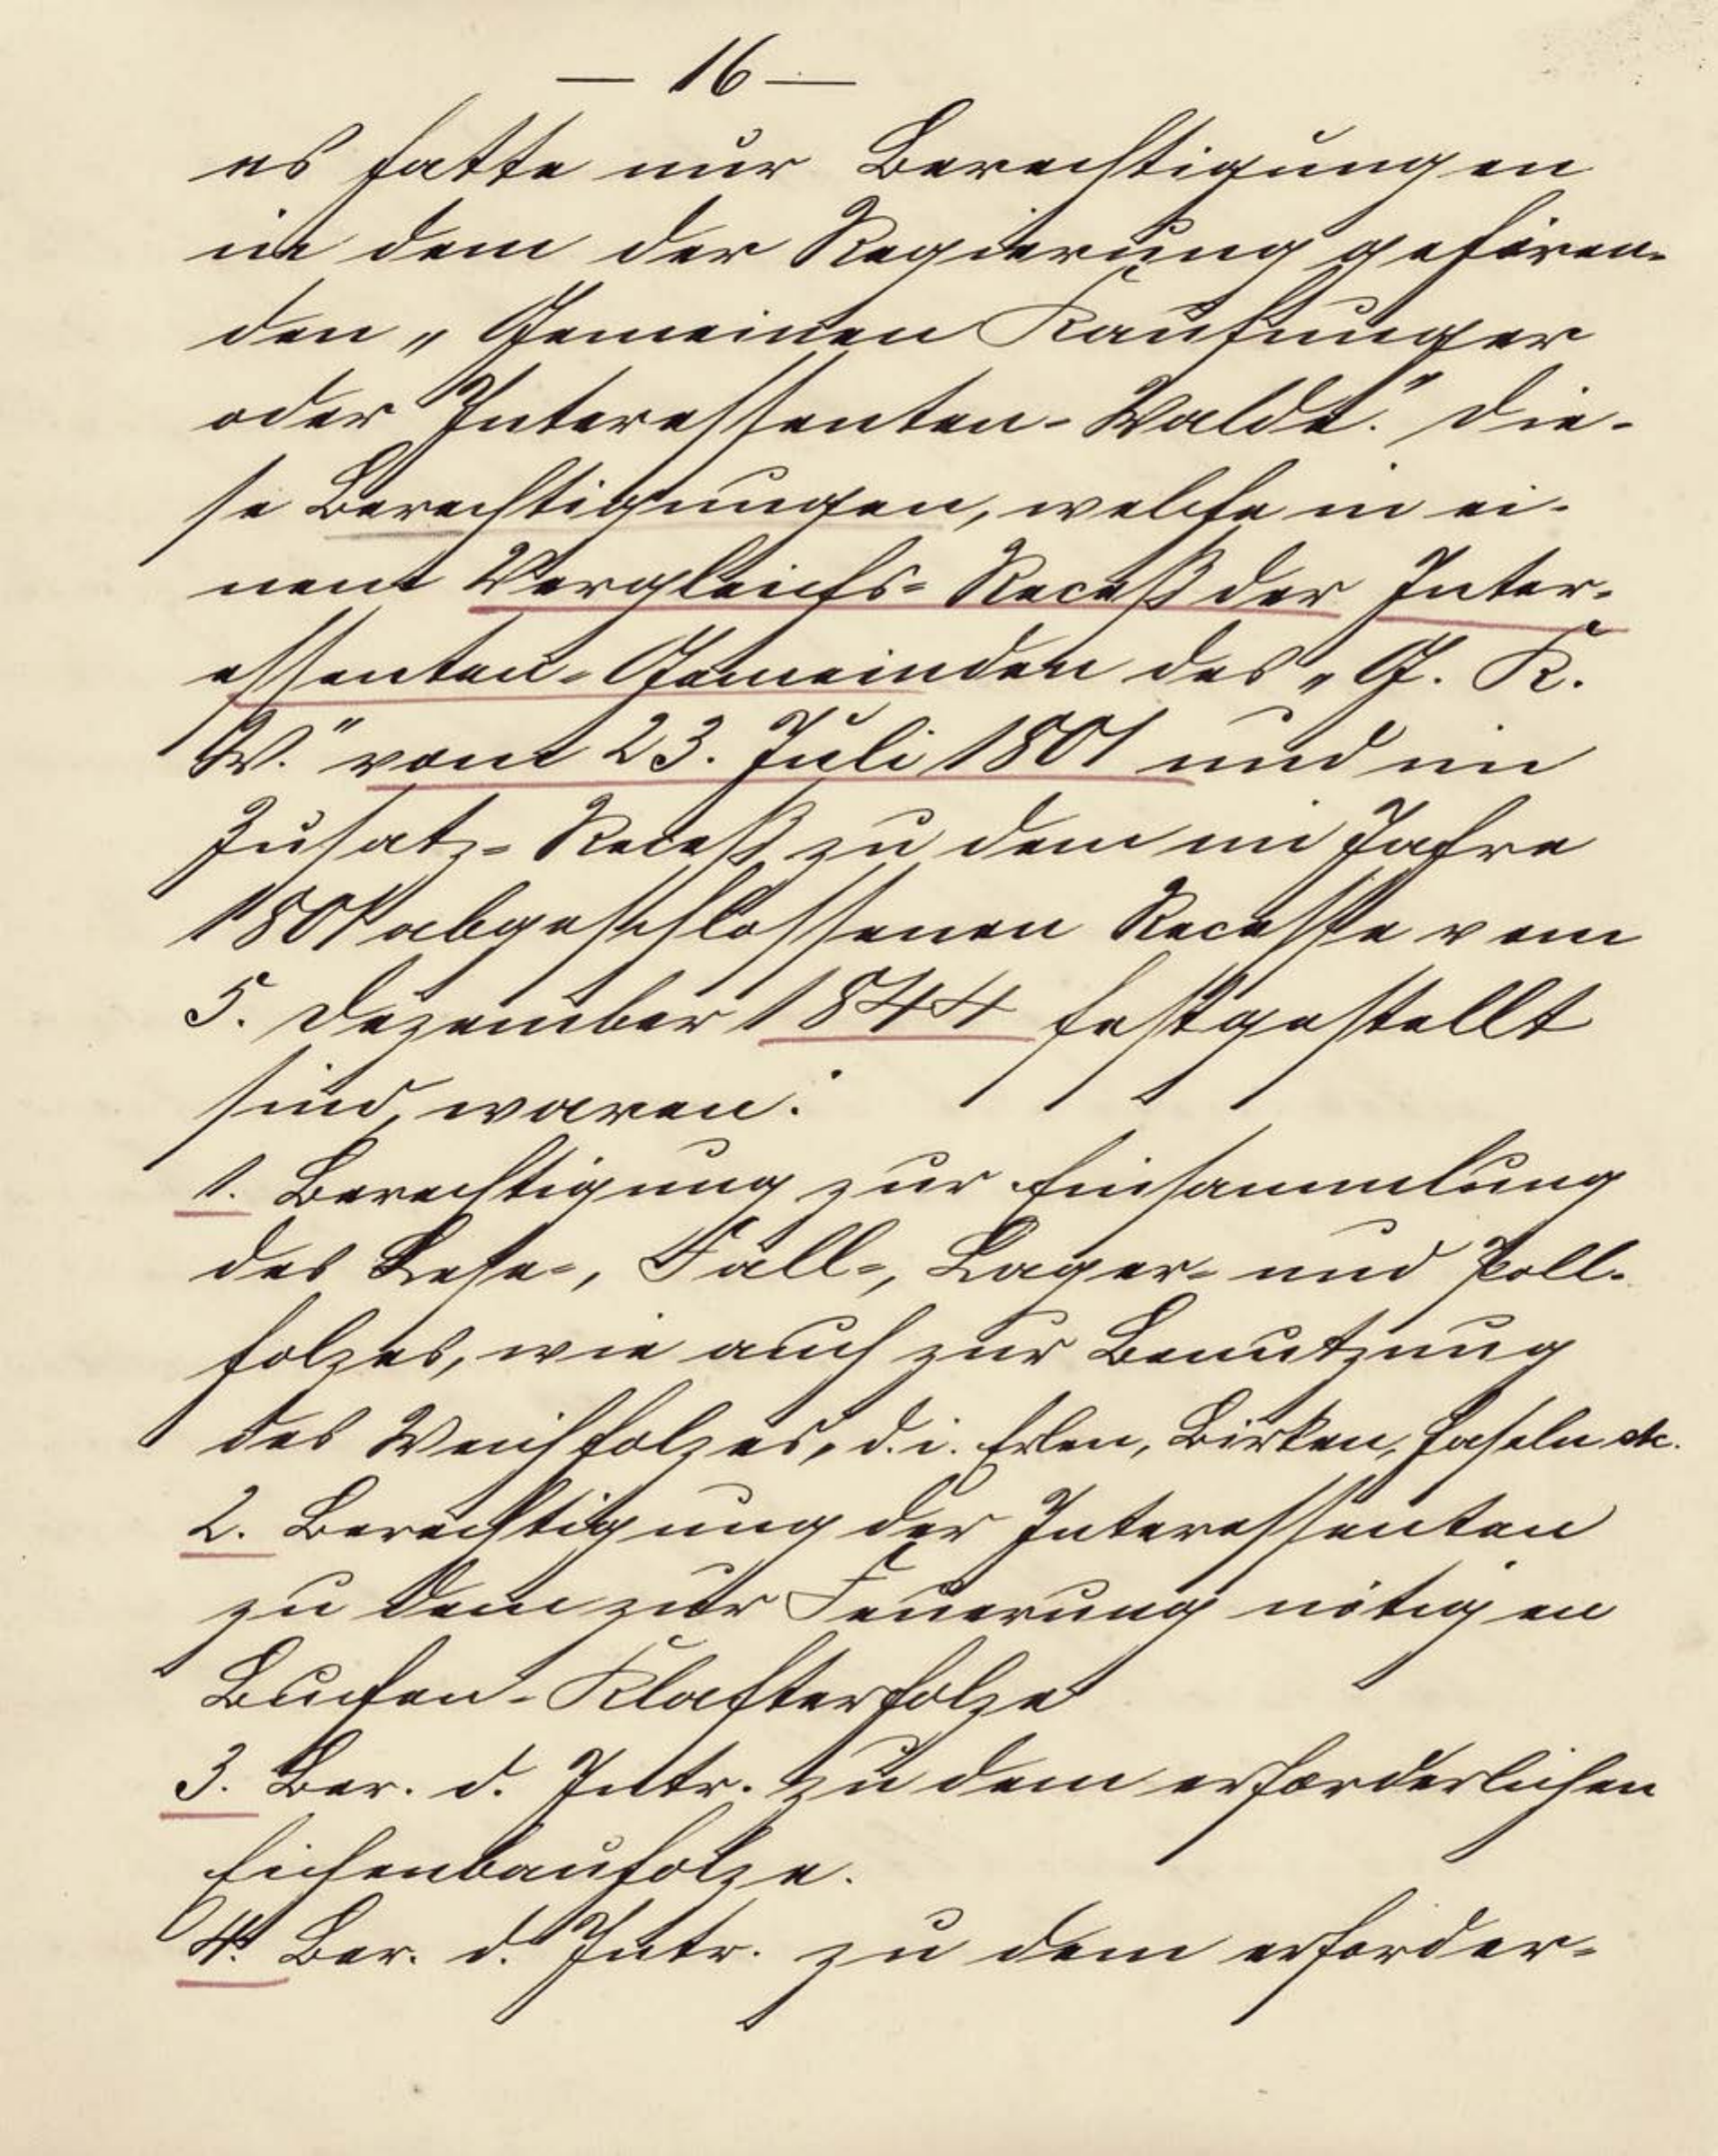 — 16 —
es hatte nur Berechtigungen
in dem der Regierung gehören-
den „Gemeinen Kaufunger
oder Interessenten-Walde." Die-
se Berechtigungen, welche in ei-
nem Vergleichs-Receß der Inter-
essenten-Gemeinden des „G. K.
W." vom 23. Juli 1801 und im
Zusatz-Receß zu dem im Jahre
1801 abgeschlossenen Recesse vom
5. Dezember 1844 festgestellt
sind, waren:
1. Berechtigung zur Einsammlung
des Lese-, Fall-, Lager- und Zoll-
holzes, wie auch zur Benutzung
des Weichholzes, d. i. Erlen, Birken, Haseln etc.
2. Berechtigung der Interessenten
zu dem zur Feuerung nötigen
Buchen-Klafterholze
3. Ber. d. Intr. zu dem erforderlichen
Eichenbauholze.
4. Ber. d. Intr. zu dem erforder-